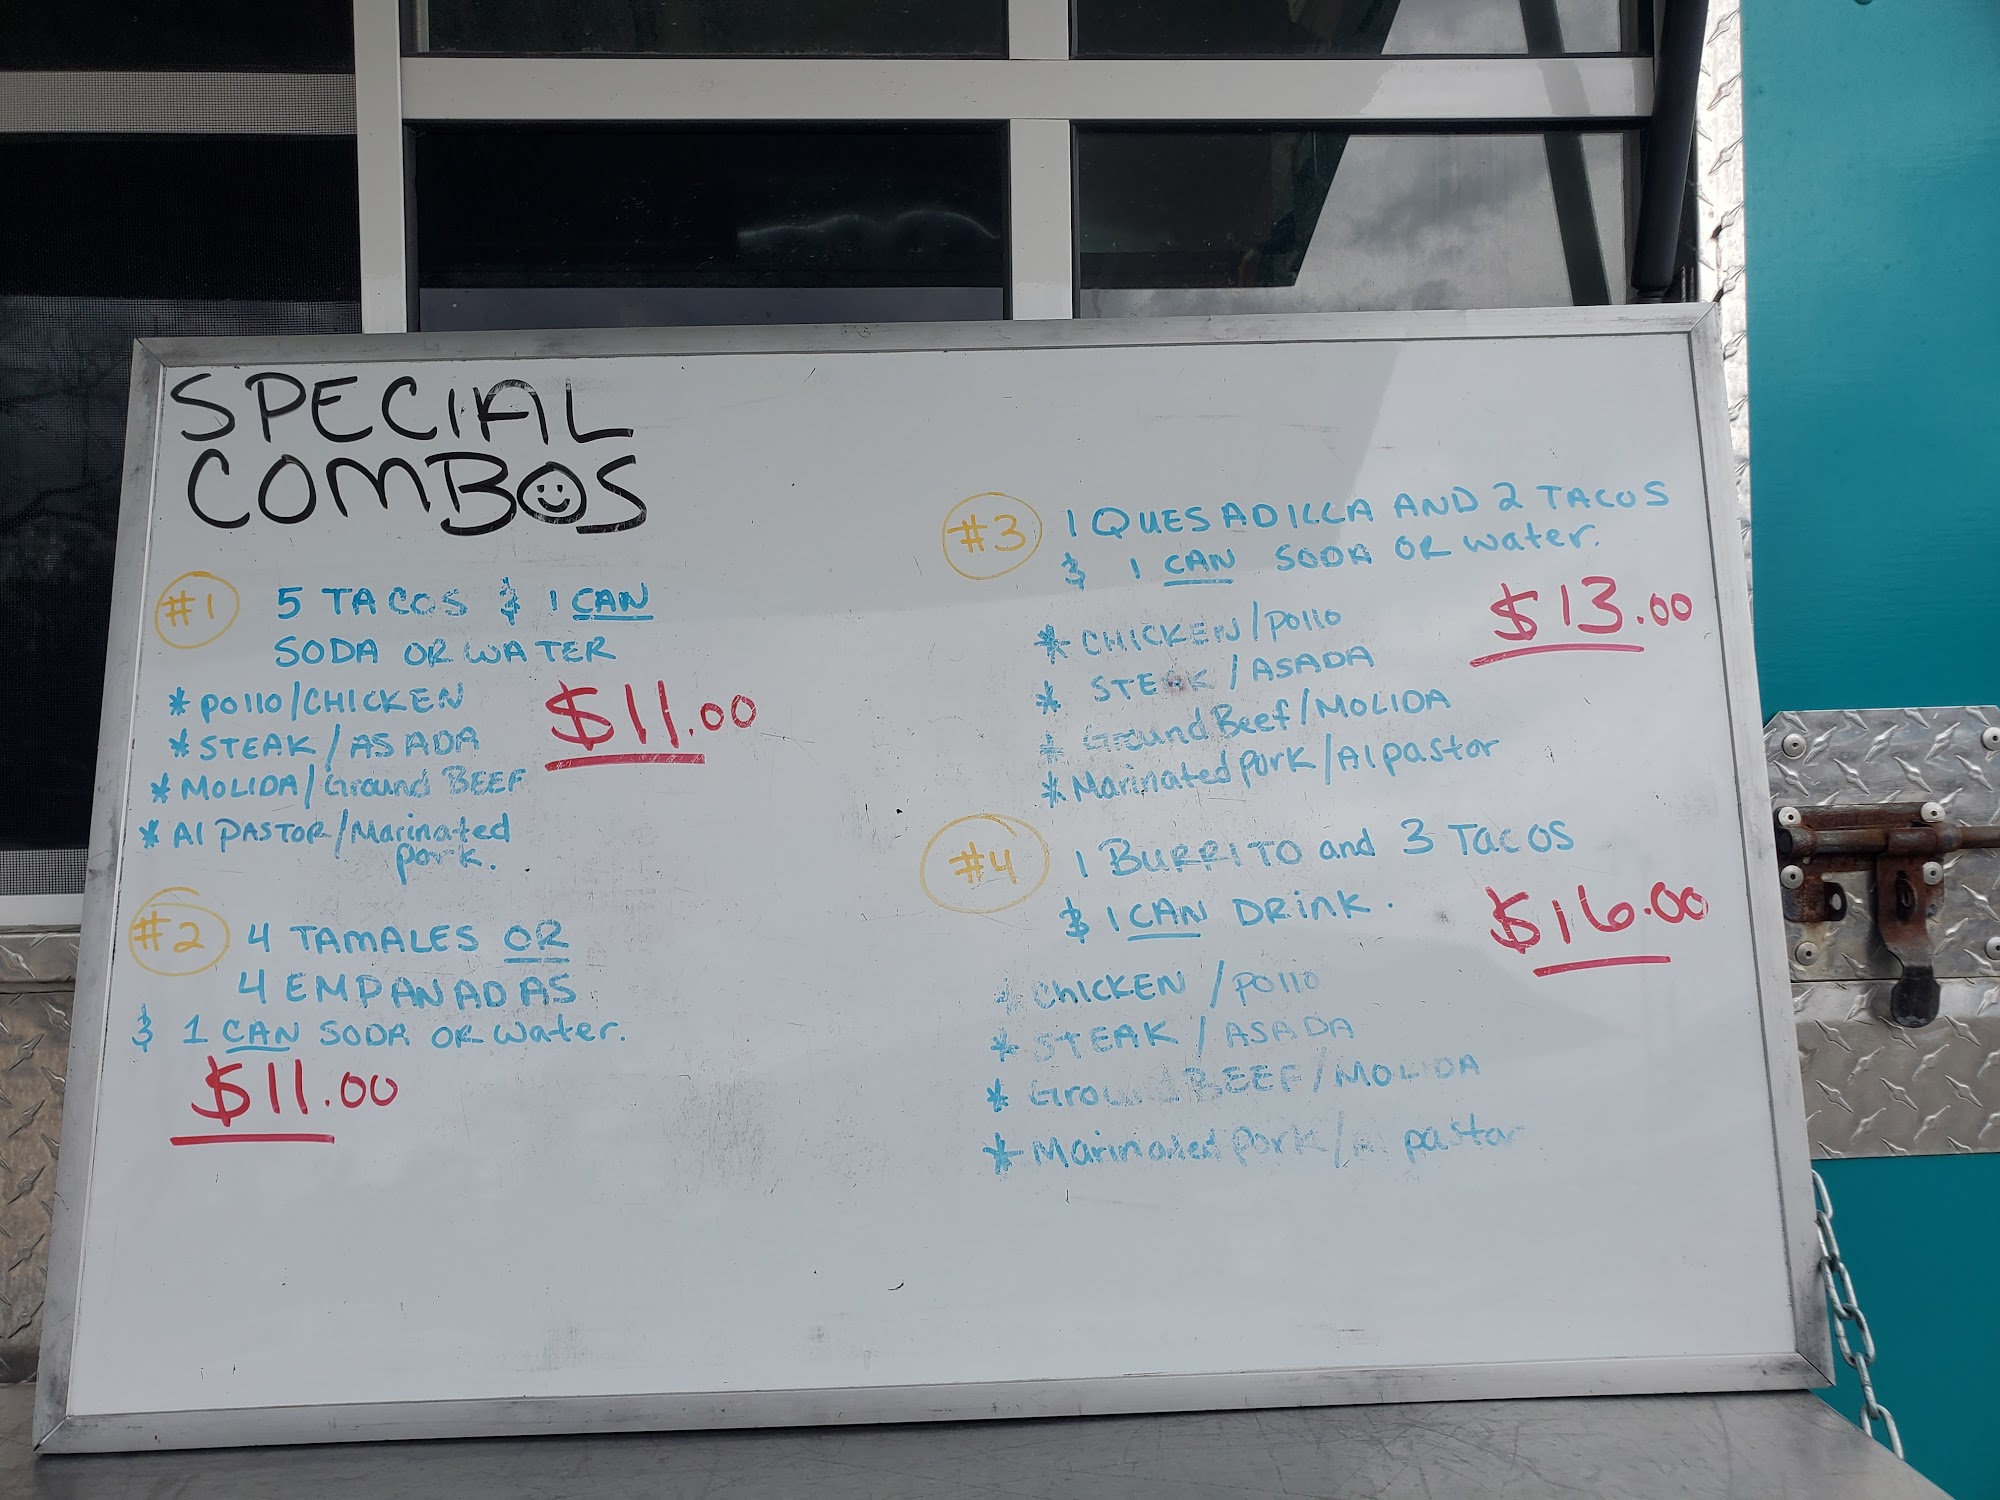 SPECIAL
COMBOS
#1 5 TACOS & 1 CAN
SODA OR WATER
* Pollo/CHICKEN
* STEAK/ASADA
* MOLIDA/Ground BEEF
* Al PASTOR/Marinated
pork.
$11.00
#2 4 TAMALES OR
4 EMPANADAS
& 1 CAN SODA OR water.
$11.00
#3 1 QUESADILLA AND 2 TACOS
& 1 CAN SODA OR water.
$13.00
* CHICKEN/pollo
* STEAK/ASADA
* Ground Beef/MOLIDA
* Marinated pork/Al pastor
#4 1 BURRITO and 3 TACOS
& 1 CAN DRINK.
$16.00
* ChICKEN/pollo
* STEAK/ASADA
* Ground BEEF/MOLIDA
* Marinated pork/Al pastor